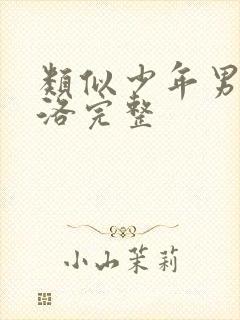 類似少年男
洛完整
小山茉莉